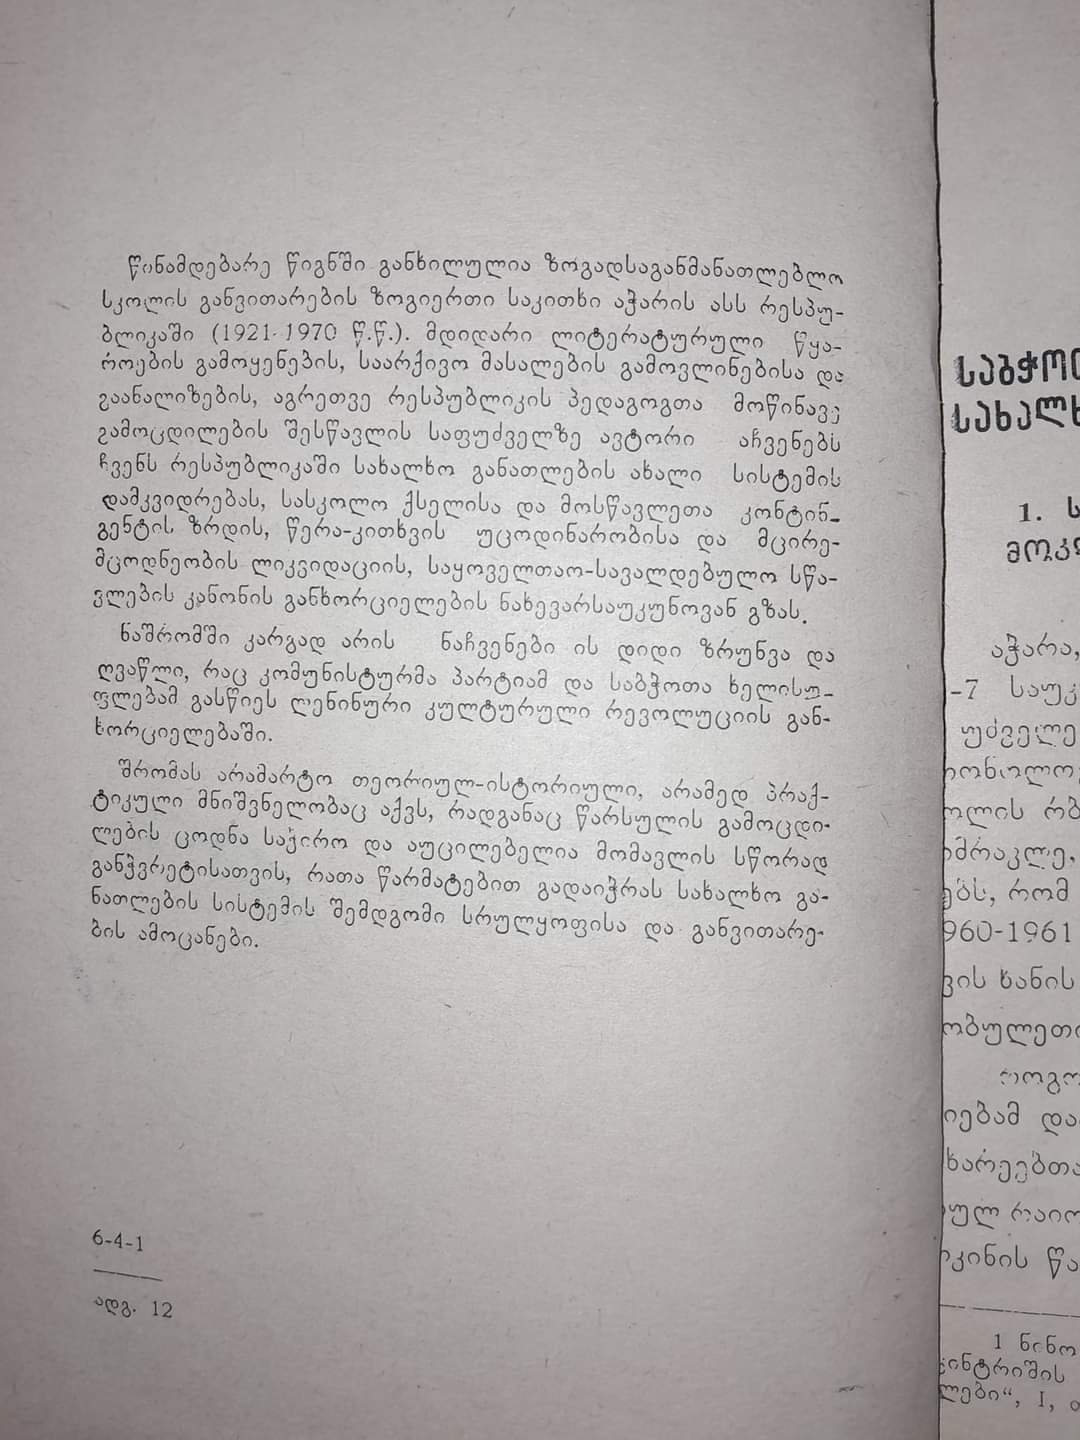 წინამდებარე წიგნში განხილულია ზოგადსაგანმანათლებლო
სკოლის განვითარების ზოგიერთი საკითხი აჭარის ასს რესპუ-
ბლიკაში (1921-1970 წ.წ.). მდიდარი ლიტერატურული წყა-
როების გამოყენების, საარქივო მასალების გამოვლინებისა და
გაანალიზების, აგრეთვე რესპუბლიკის პედაგოგთა მოწინავე
გამოცდილების შესწავლის საფუძველზე ავტორი აჩვენებს
ჩვენს რესპუბლიკაში სახალხო განათლების ახალი სისტემის
დამკვიდრებას, სასკოლო ქსელისა და მოსწავლეთა კონტინ-
გენტის ზრდის, წერა-კითხვის უცოდინარობისა და მცირე-
მცოდნეობის ლიკვიდაციის, საყოველთაო-სავალდებულო სწა-
ვლების კანონის განხორციელების ნახევარსაუკუნოვან გზას.
ნაშრომში კარგად არის ნაჩვენები ის დიდი ზრუნვა და
ღვაწლი, რაც კომუნისტურმა პარტიამ და საბჭოთა ხელისუ-
ფლებამ გასწიეს ლენინური კულტურული რევოლუციის გან-
ხორციელებაში.
შრომას არამარტო თეორიულ-ისტორიული, არამედ პრაქ-
ტიკული მნიშვნელობაც აქვს, რადგანაც წარსულის გამოცდი-
ლების ცოდნა საჭირო და აუცილებელია მომავლის სწორად
განჭვრეტისათვის, რათა წარმატებით გადაიჭრას სახალხო გა-
ნათლების სისტემის შემდგომი სრულყოფისა და განვითარე-
ბის ამოცანები.
6-4-1
ადგ. 12
საბჭოთ
სახალხ
1. ს
მოკლ
აჭარა,
-7 საუკ
უძველე
ოლის
ომრაკლე,
ებს, რომ
960-1961
ვის ხანის
ობულეთ
როგო
იებამ და
ხარეებთა
ულ რაიო
კინის წა
1 ნინო
კინტრიშის
ლები“, I,